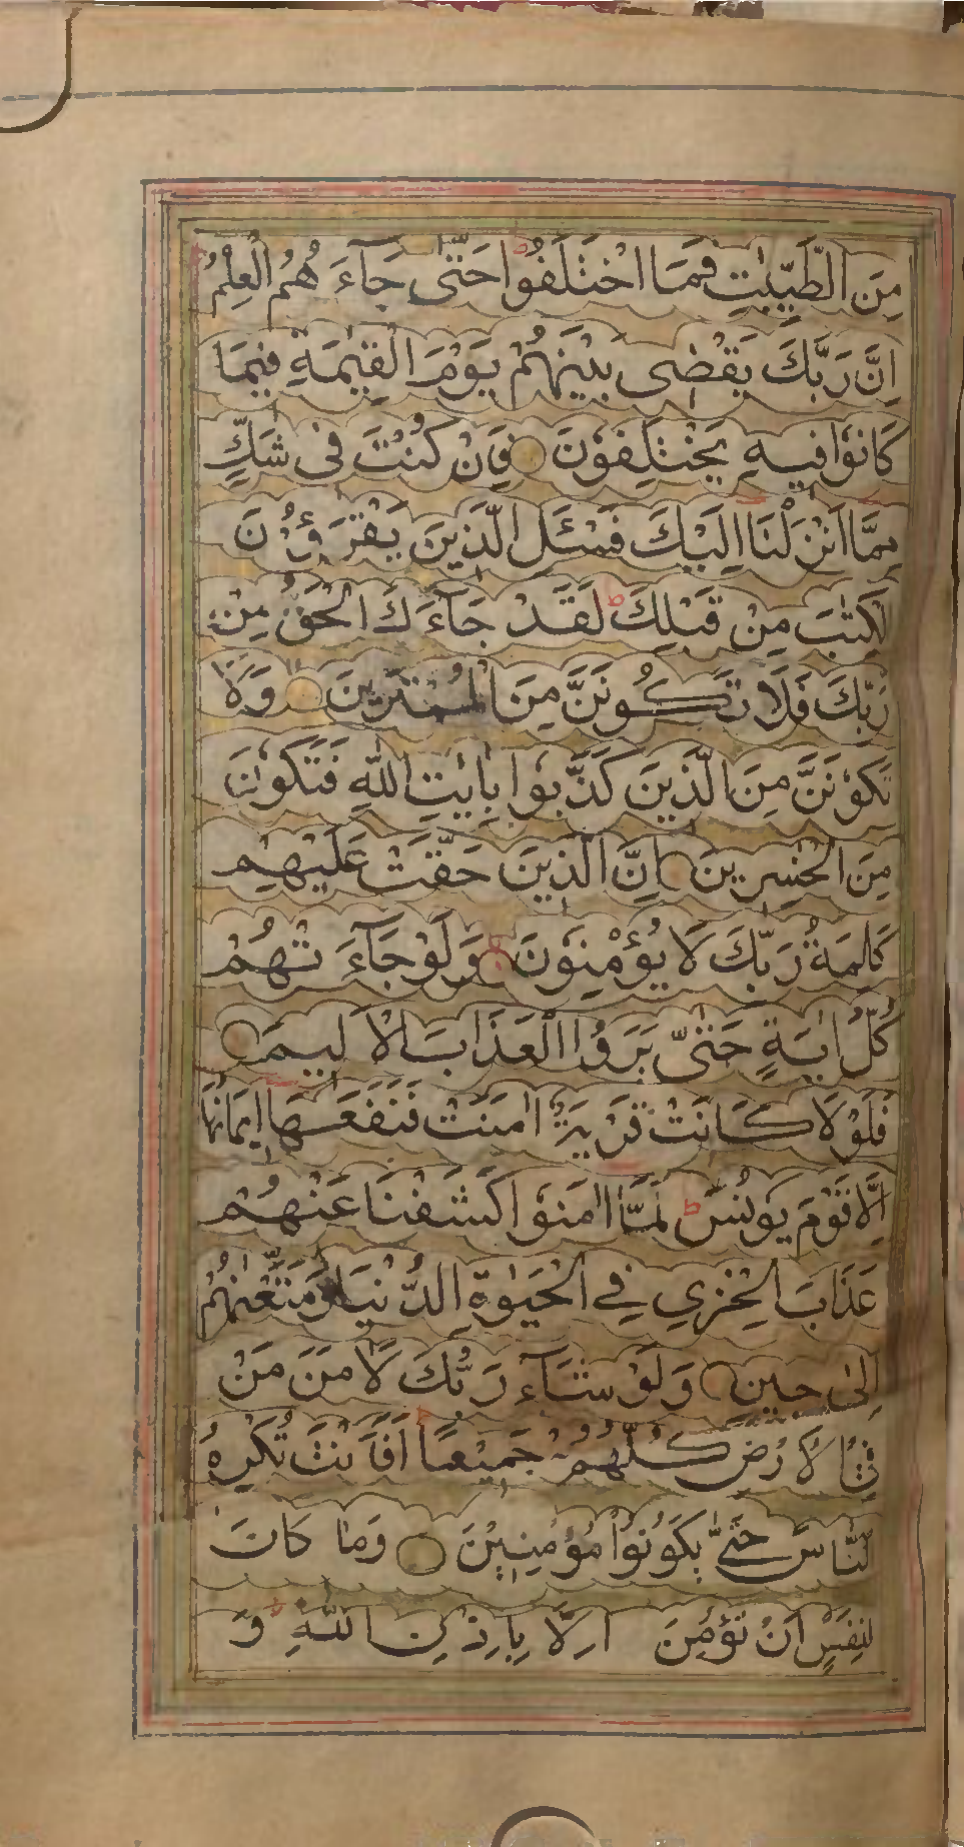 مِنَ الطَّيِّبٰتِ فَمَا اخْتَلَفُوْا حَتّٰى جَآءَ هُمُ الْعِلْمُ ط
اِنَّ رَبَّكَ يَقْضِى بَيْنَهُمْ يَوْمَ الْقِيٰمَةِ فِيْمَا
كَانُوْا فِيْهِ يَخْتَلِفُوْنَ ○ فَاِنْ كُنْتَ فِى شَكٍّ
مِمَّا اَنْزَلْنَا اِلَيْكَ فَسْئَلِ الَّذِيْنَ يَقْرَءُوْنَ
الْكِتٰبَ مِنْ قَبْلِكَ ط لَقَدْ جَآءَكَ الْحَقُّ مِنْ
رَبِّكَ فَلَا تَكُوْنَنَّ مِنَ الْمُمْتَرِيْنَ ○ وَلَا
تَكُوْنَنَّ مِنَ الَّذِيْنَ كَذَّبُوْا بِاٰيٰتِ اللّٰهِ فَتَكُوْنَ
مِنَ الْخٰسِرِيْنَ ○ اِنَّ الَّذِيْنَ حَقَّتْ عَلَيْهِمْ
كَلِمَةُ رَبِّكَ لَا يُؤْمِنُوْنَ ○ وَلَوْ جَآءَ تْهُمْ
كُلُّ اٰيَةٍ حَتّٰى يَرَوُا الْعَذَابَ الْاَلِيْمَ ○
فَلَوْلَا كَانَتْ قَرْيَةٌ اٰمَنَتْ فَنَفَعَهَا اِيْمَانُهَا
اِلَّا قَوْمَ يُوْنُسَ ط لَمَّا اٰمَنُوْا كَشَفْنَا عَنْهُمْ
عَذَابَ الْخِزْىِ فِى الْحَيٰوةِ الدُّنْيَا وَمَتَّعْنٰهُمْ
اِلٰى حِيْنٍ ○ وَلَوْ شَآءَ رَبُّكَ لَاٰمَنَ مَنْ
فِى الْاَرْضِ كُلُّهُمْ جَمِيْعًا اَفَاَنْتَ تُكْرِهُ
النَّاسَ حَتّٰى يَكُوْنُوْا مُؤْمِنِيْنَ ○ وَمَا كَانَ
لِنَفْسٍ اَنْ تُؤْمِنَ اِلَّا بِاِذْنِ اللّٰهِ ط وَ